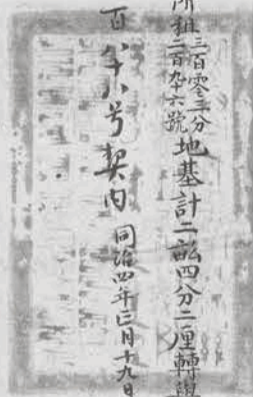 所租三百零三分二百九十六號地基計二畝四分二厘轉與
百八十八号契内同治四年三月十九日